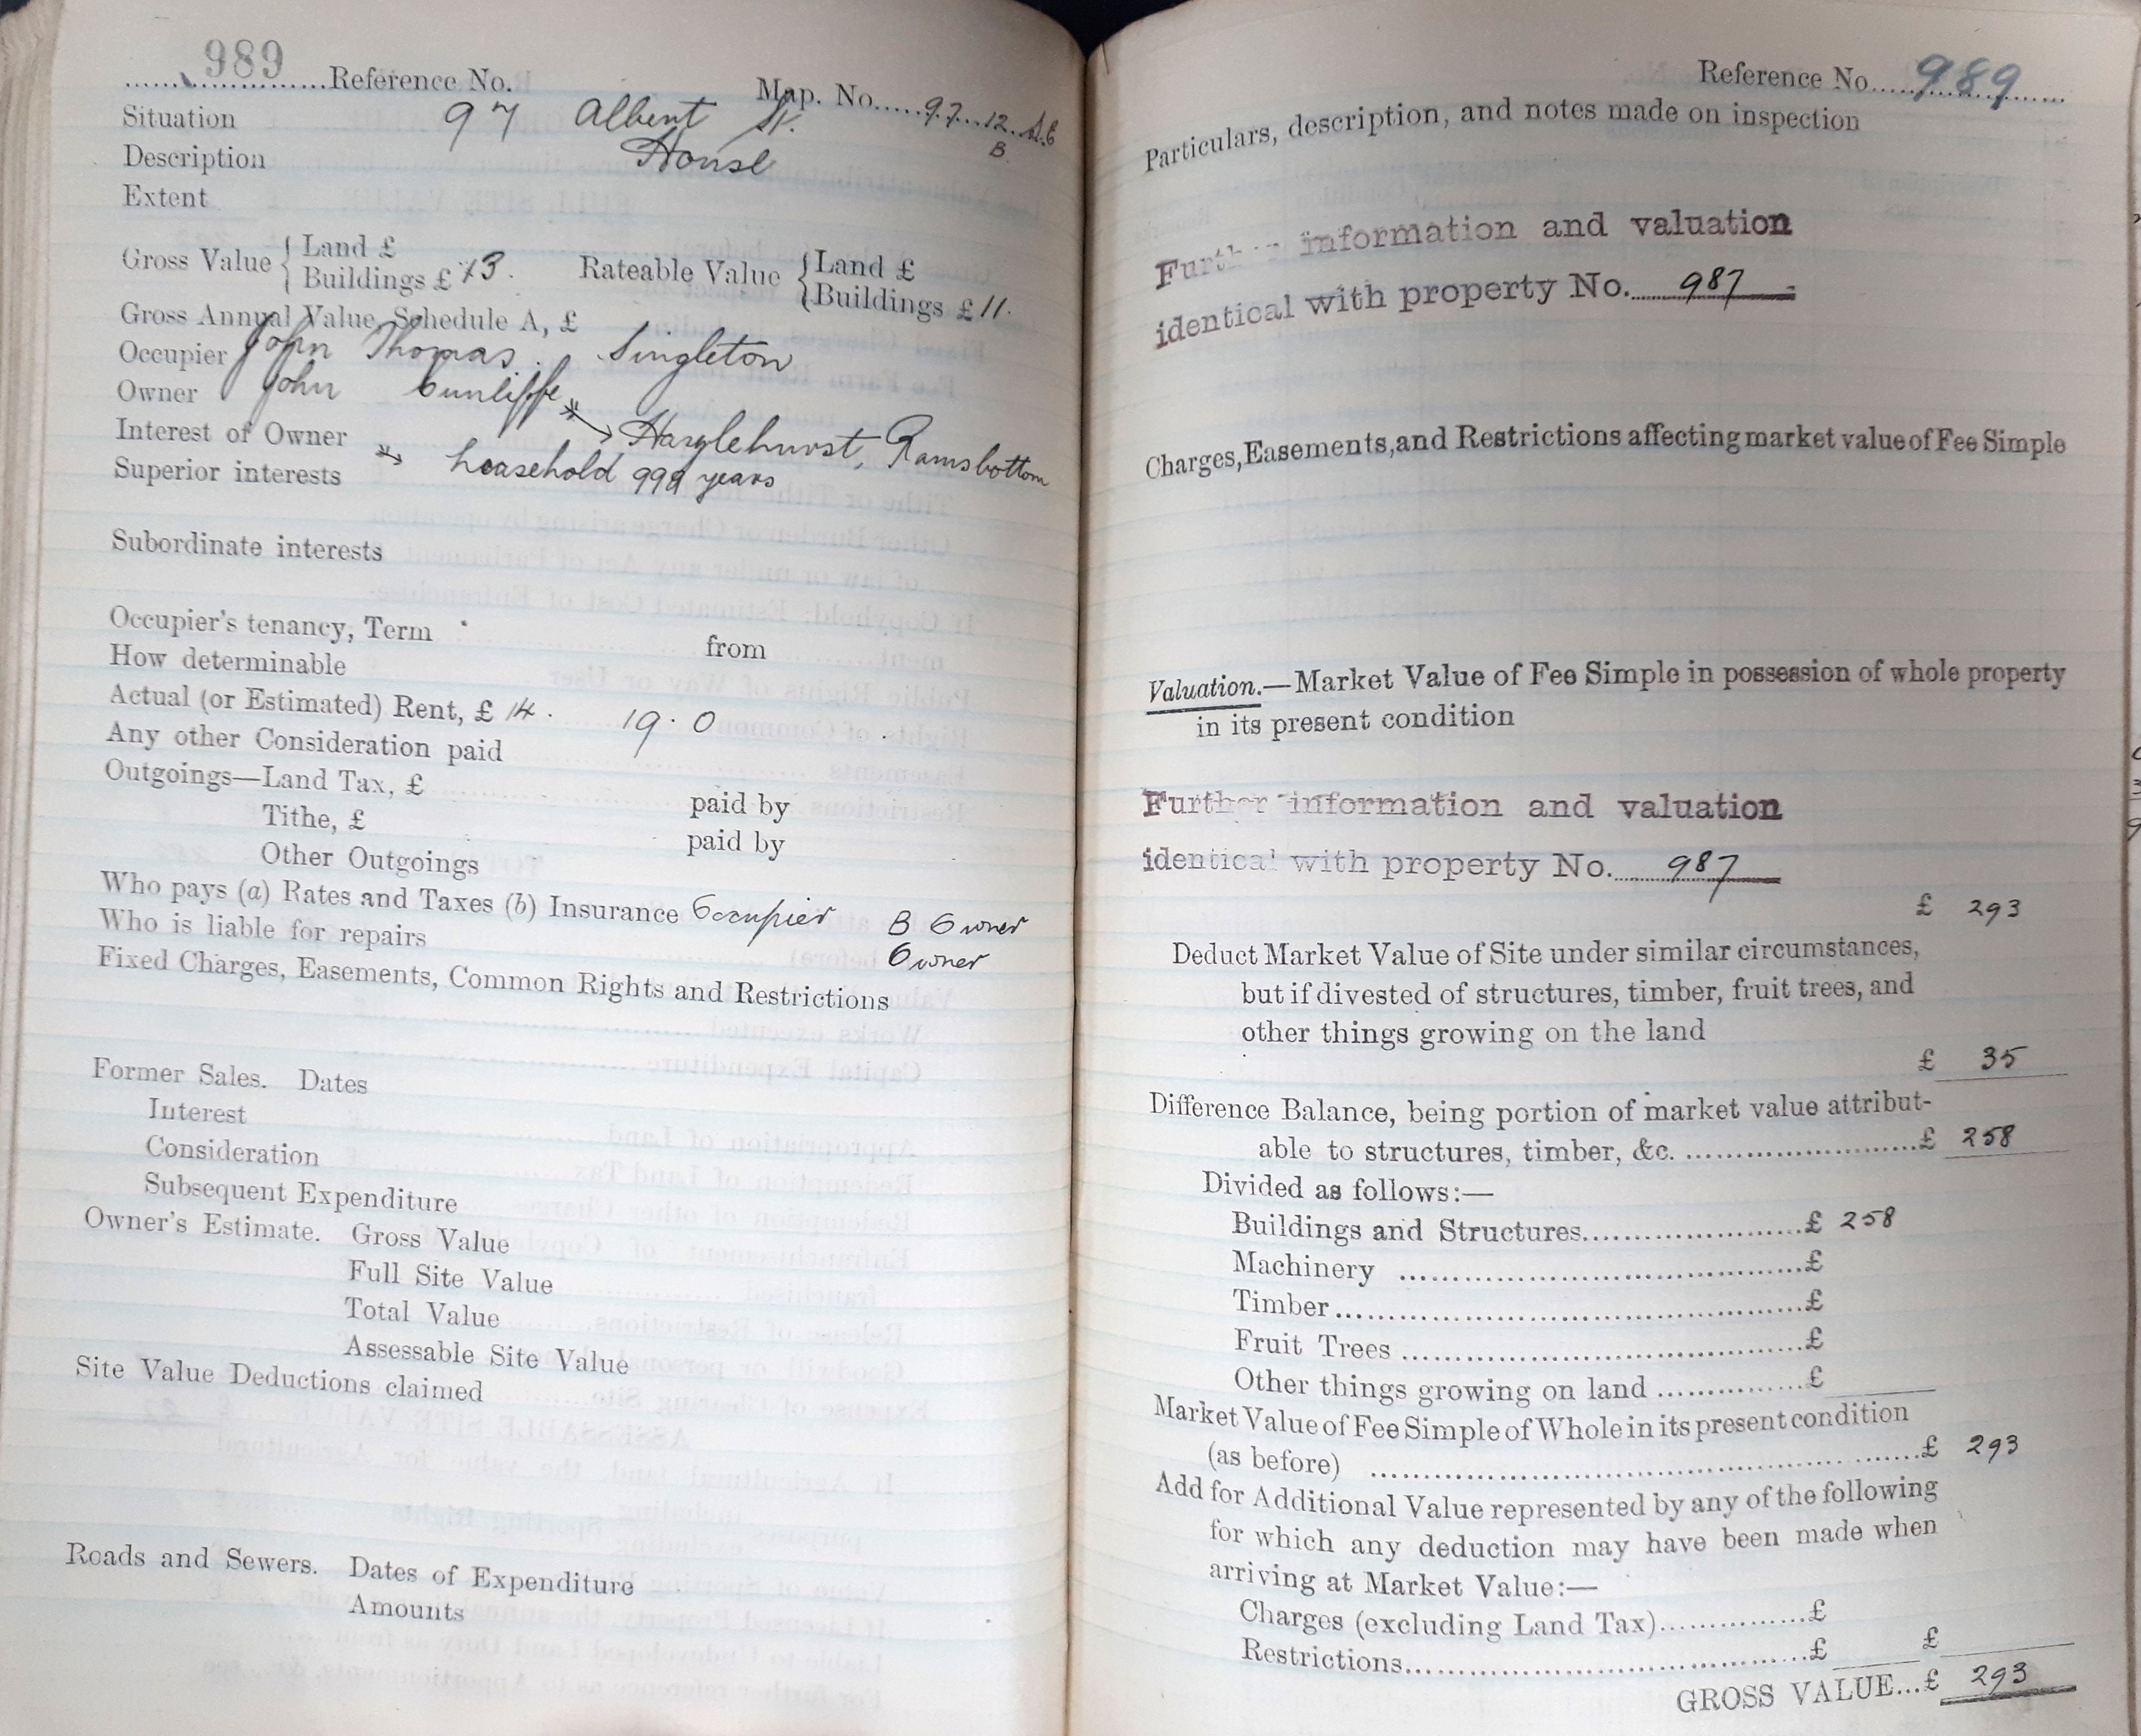 989 Reference No. Map. No. 97.12. S.E
B
Situation 97 Albert St.
Description House
Extent
Gross Value { Land £
Buildings £ 13. Rateable Value { Land £
Buildings £ 11.
Gross Annual Value, Schedule A, £
Occupier John Thomas Singleton
Owner John Cunliffe
Interest of Owner Hazlehurst, Ramsbottom
Superior interests leasehold 999 years
Subordinate interests
Occupier's tenancy, Term from
How determinable
Actual (or Estimated) Rent, £ 14. 19. 0
Any other Consideration paid
Outgoings—Land Tax, £ paid by
Tithe, £ paid by
Other Outgoings
Who pays (a) Rates and Taxes (b) Insurance Occupier B Owner
Who is liable for repairs Owner
Fixed Charges, Easements, Common Rights and Restrictions
Former Sales. Dates
Interest
Consideration
Subsequent Expenditure
Owner's Estimate. Gross Value
Full Site Value
Total Value
Assessable Site Value
Site Value Deductions claimed
Roads and Sewers. Dates of Expenditure
Amounts
Reference No. 989
Particulars, description, and notes made on inspection
Further information and valuation
identical with property No. 987
Charges, Easements, and Restrictions affecting market value of Fee Simple
Valuation.—Market Value of Fee Simple in possession of whole property
in its present condition
Further information and valuation
identical with property No. 987
£ 293
Deduct Market Value of Site under similar circumstances,
but if divested of structures, timber, fruit trees, and
other things growing on the land
£ 35
Difference Balance, being portion of market value attribut-
able to structures, timber, &c. £ 258
Divided as follows:—
Buildings and Structures £ 258
Machinery £
Timber £
Fruit Trees £
Other things growing on land £
Market Value of Fee Simple of Whole in its present condition
(as before) £ 293
Add for Additional Value represented by any of the following
for which any deduction may have been made when
arriving at Market Value:—
Charges (excluding Land Tax) £
Restrictions £ £
GROSS VALUE... £ 293